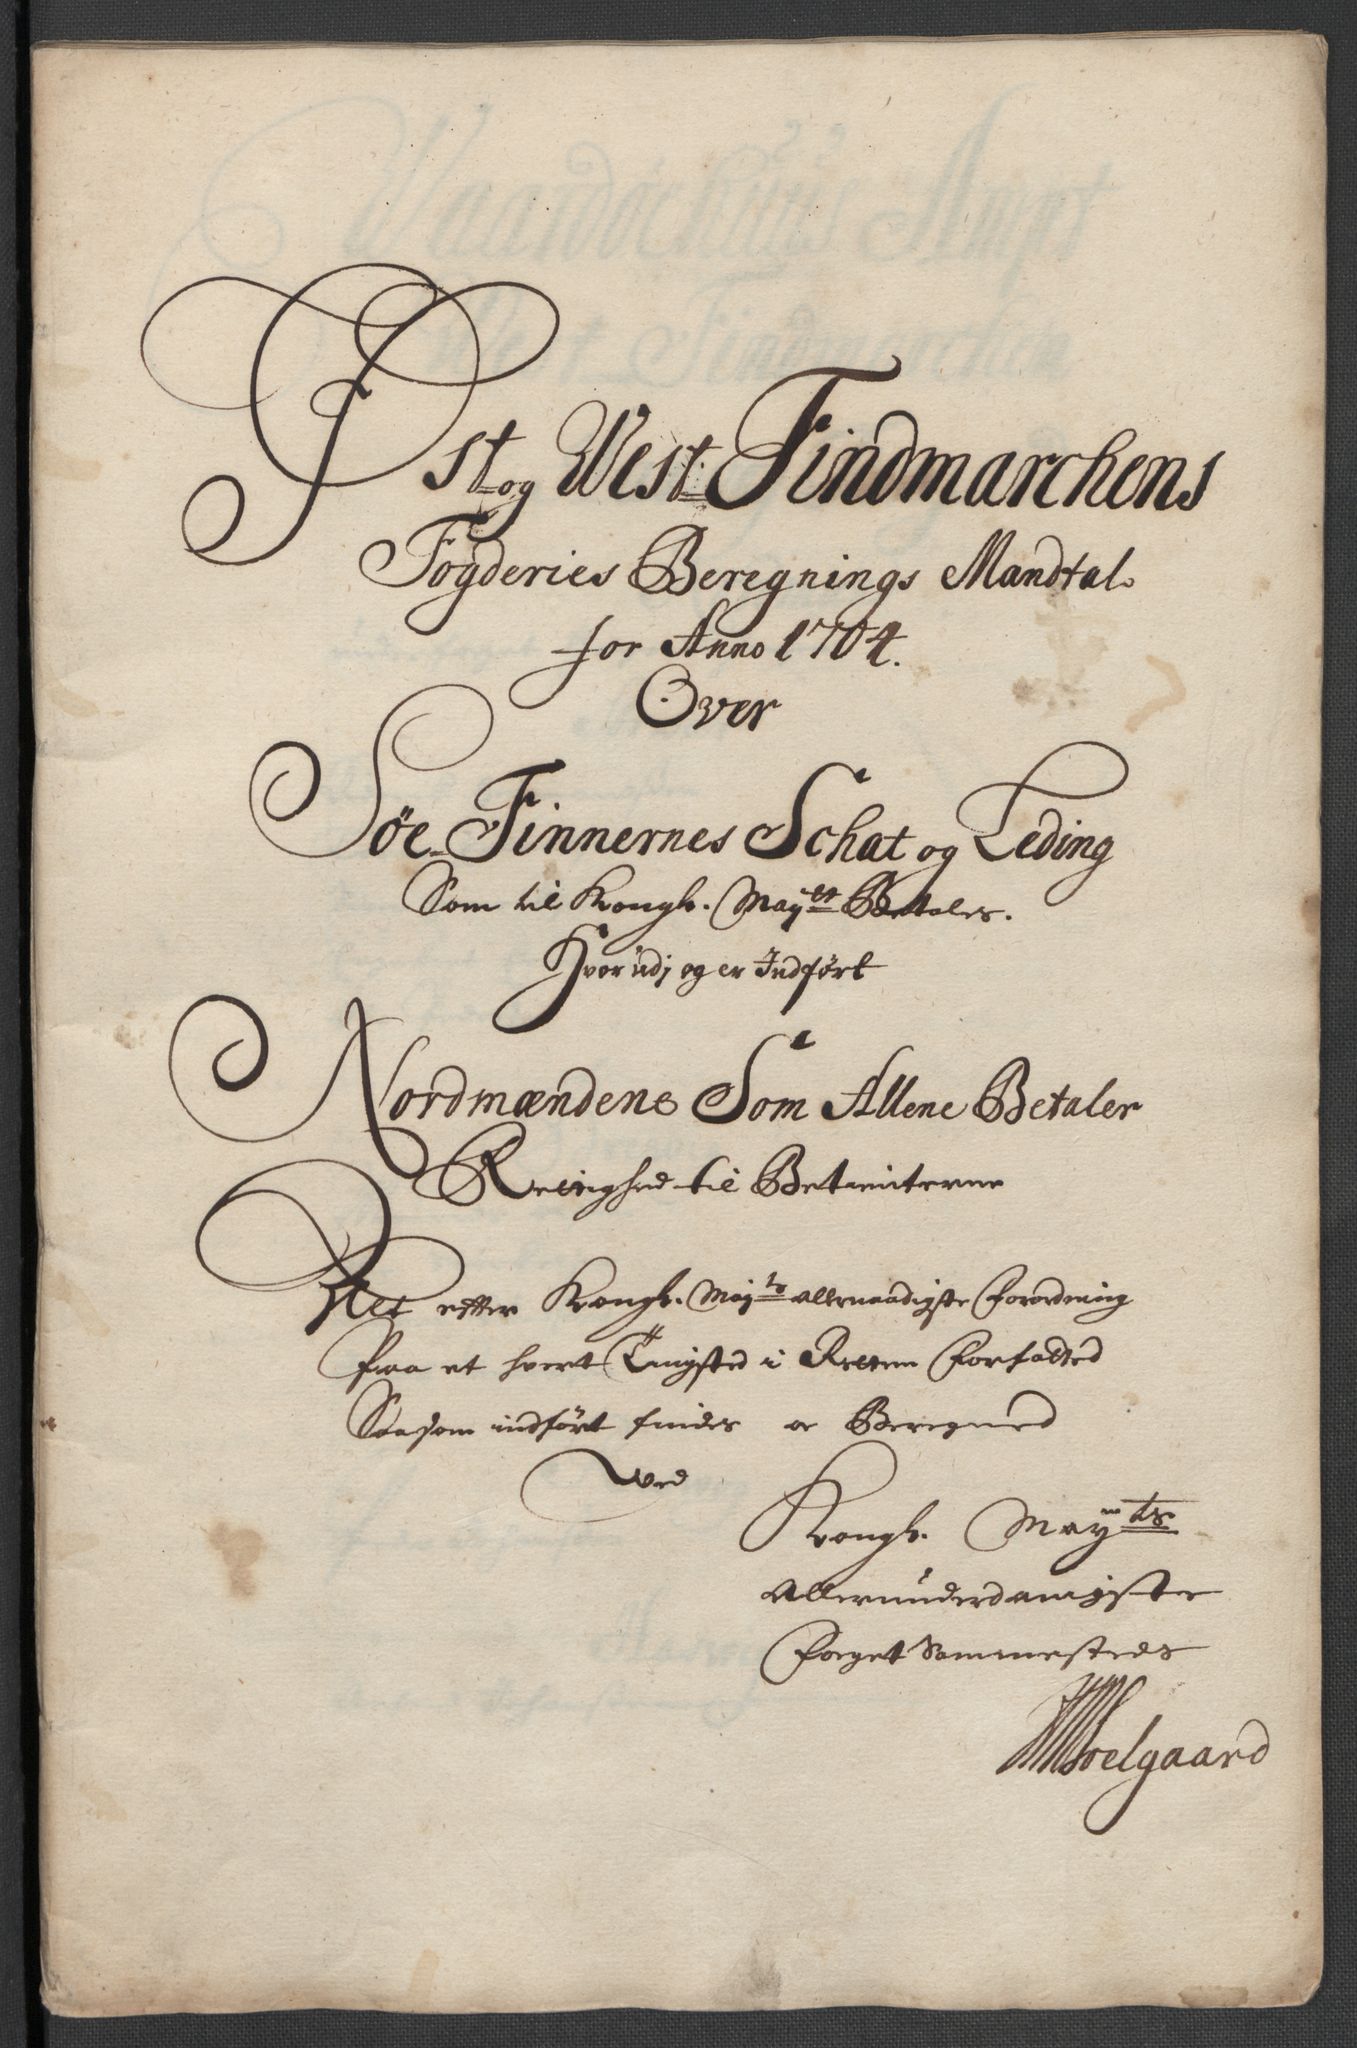 Øst og West Findmarchens
Fogderies Beregnings Mandtal
for Anno 1704.
Over
Søe Finnernes Schat og Leding
Som til Kongl. Mayts Betales.
Hvor udj og er Indført
Nordmændene Som Allene Betaler
Rettighed til Betienterne
Alt effter Kongl. Mayts allernaadigste Forordning
Paa et hvert Tingsted i Retten Forfatted
Saasom indført findes oc Beregned
Ved
Kongl. Mayts
Allerunderdanigste
Foeget Sammesteds
Soelgaard